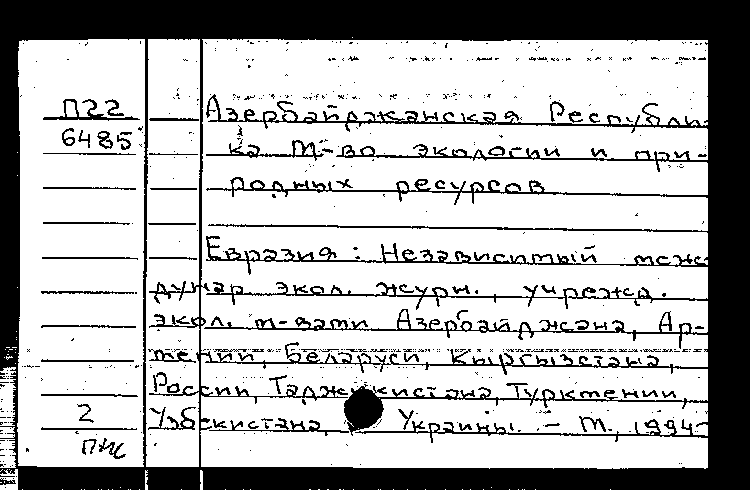 П22
6485
Азербайджанская Республи-
ка М-во экологии и при-
родных ресурсов
Евразия: Независимый меж-
дунар экол. журн., учрежд.
экол. м-вами Азербайджана, Ар-
мении, Беларуси, Кыргызстана,
России, Таджикистана, Туркмении,
2 Узбекистана, Украины. - М., 1994-
ПНС